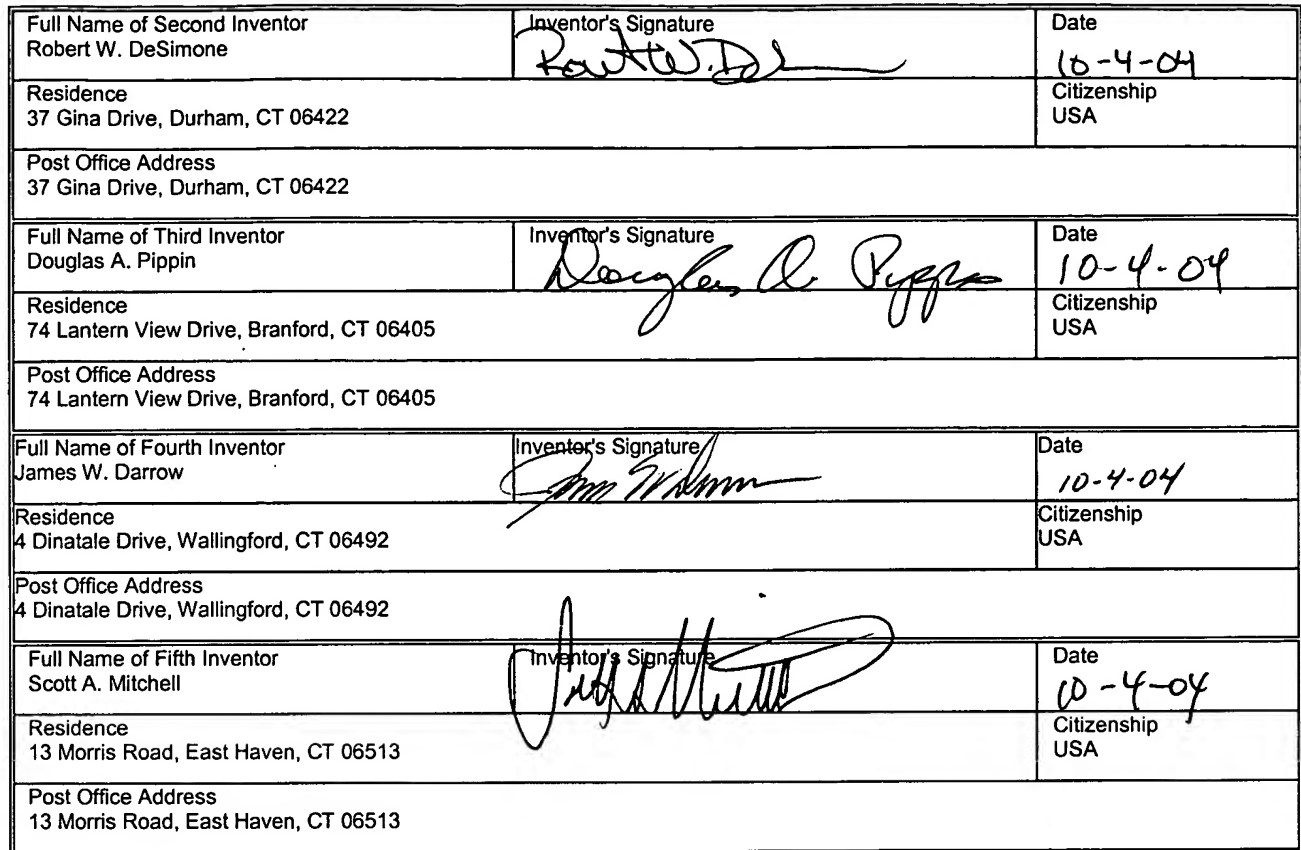 Full Name of Second Inventor
Robert W. DeSimone
Inventor's Signature
Date
10-4-04
Residence
37 Gina Drive, Durham, CT 06422
Citizenship
USA
Post Office Address
37 Gina Drive, Durham, CT 06422
Full Name of Third Inventor
Douglas A. Pippin
Inventor's Signature
Douglas A. Pippin
Date
10-4-04
Residence
74 Lantern View Drive, Branford, CT 06405
Citizenship
USA
Post Office Address
74 Lantern View Drive, Branford, CT 06405
Full Name of Fourth Inventor
James W. Darrow
Inventor's Signature
Date
10-4-04
Residence
4 Dinatale Drive, Wallingford, CT 06492
Citizenship
USA
Post Office Address
4 Dinatale Drive, Wallingford, CT 06492
Full Name of Fifth Inventor
Scott A. Mitchell
Inventor's Signature
Date
10-4-04
Residence
13 Morris Road, East Haven, CT 06513
Citizenship
USA
Post Office Address
13 Morris Road, East Haven, CT 06513